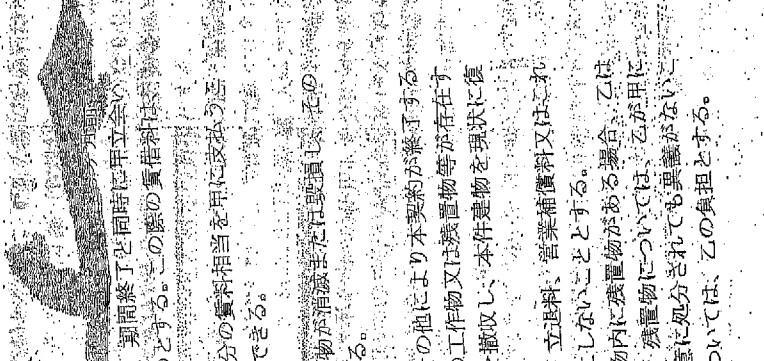 ヶ月前
期間終了と同時に甲立会い
とする。この際の賃借料は、
分の賃料相当を甲に支払う
できる。
物が消滅または毀損し、その
る。
の他により本契約が終了する
の工作物又は残置物等が存在す
撤収し、本件建物を現状に復
立退料、営業補償料又はこれ
しないこととする。
物内に残置物がある場合、乙は
残置物については、乙が甲に
意に処分されても異議がない
ついては、乙の負担とする。